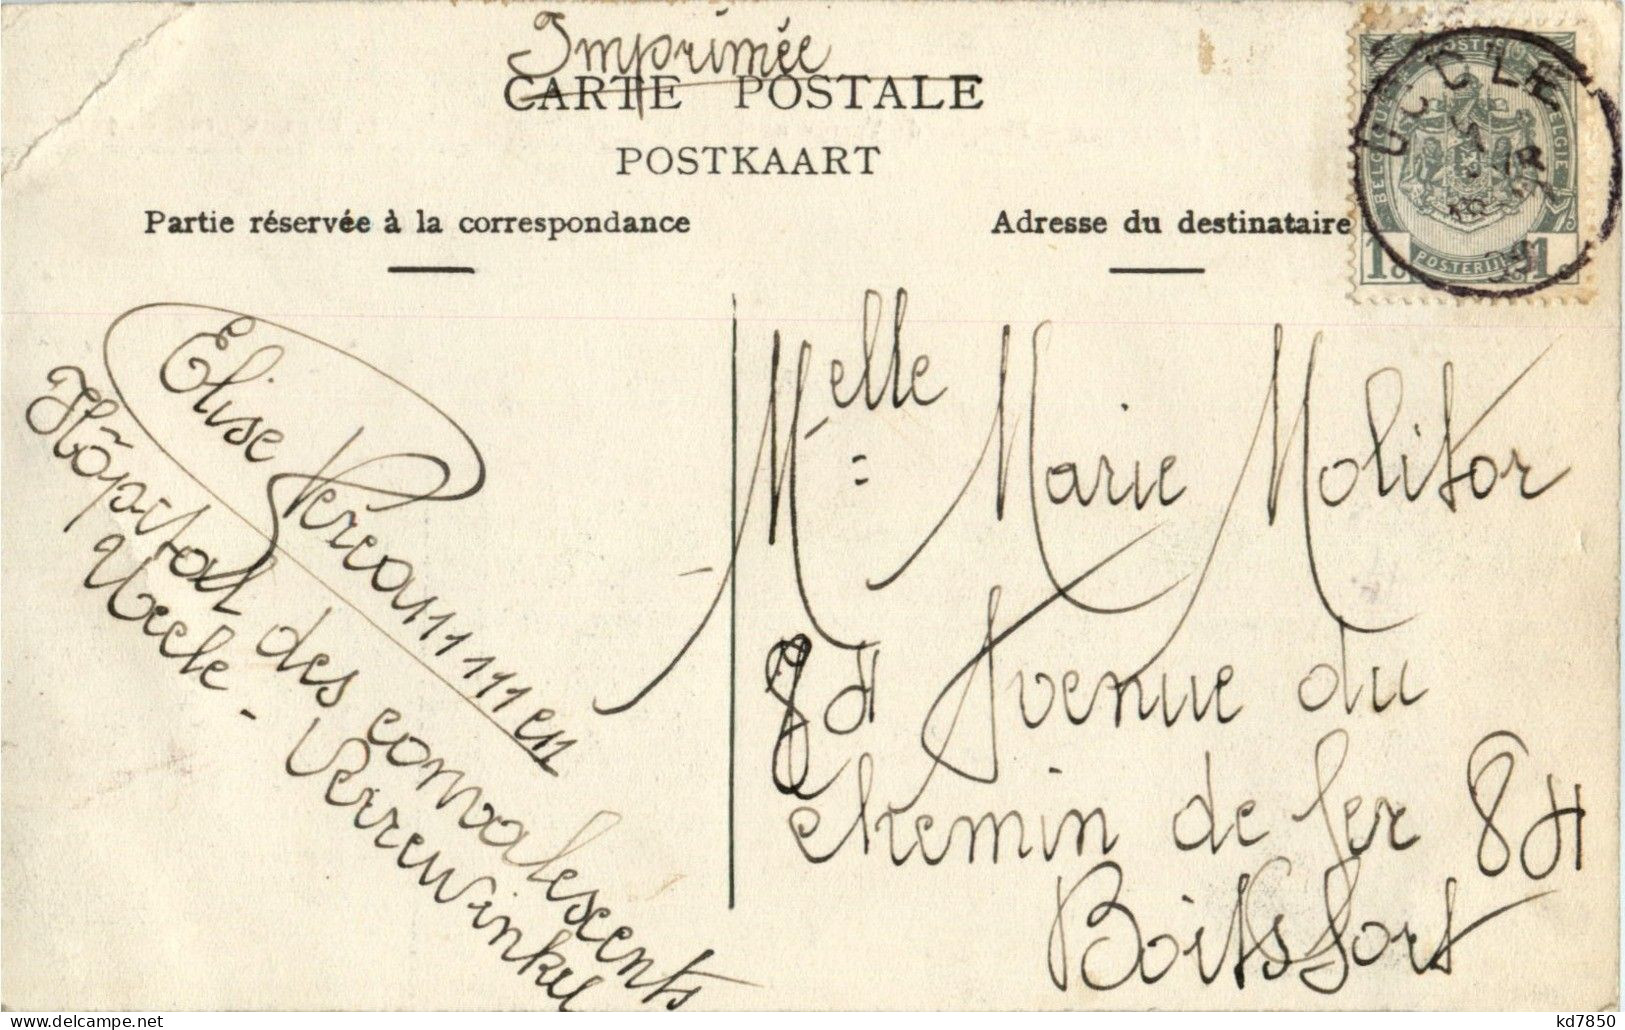 Imprimée
CARTE POSTALE
POSTKAART
Partie réservée à la correspondance
Adresse du destinataire
UCCLE
BELGIQUE POSTES BELGIE
POSTERIJEN
1 1
Elise
Hôpital des convalescents
Uccle - Verrewinkel
Melle Marie Molitor
84 Avenue du
chemin de fer 84
Boitsfort
kd7850